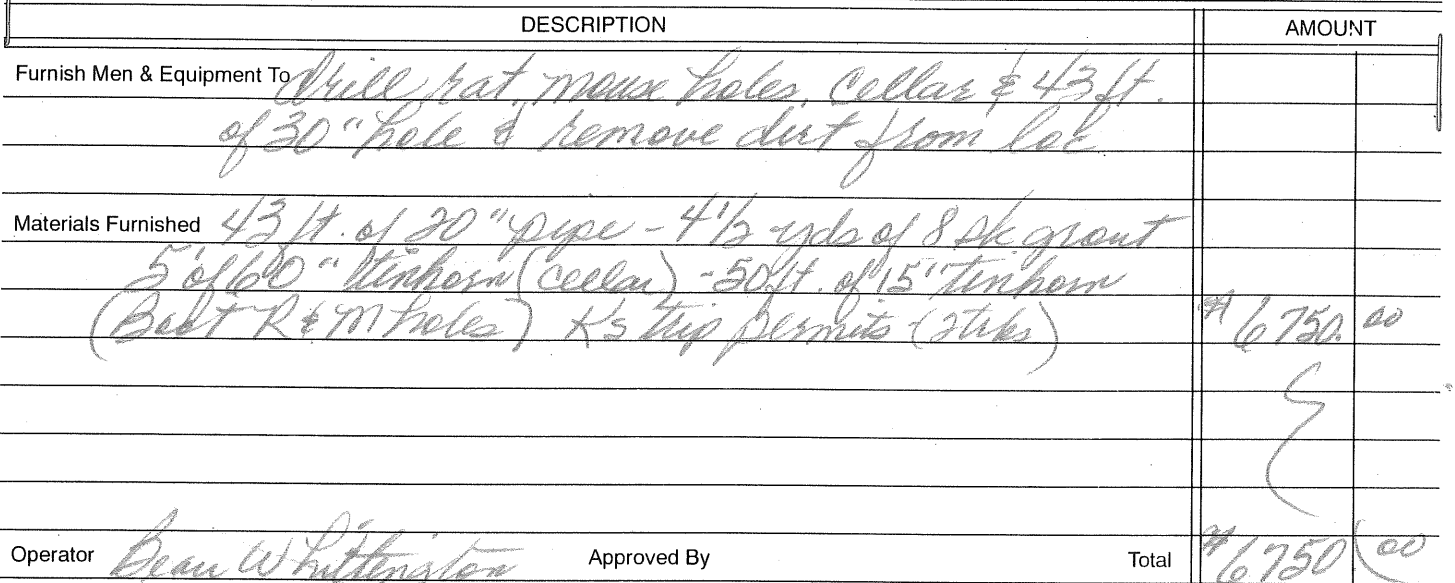 DESCRIPTION AMOUNT
Furnish Men & Equipment To drill rat, mouse holes, cellar & 43 ft.
of 30" hole & remove dirt from loc
Materials Furnished 43 ft. of 20" pipe - 4 1/2 yds of 8 sk grout
5' of 60" tinhorn (cellar) - 50 ft. of 15" tinhorn
(Both R & M holes) Ks trip permits (2trks) $6750.00
Operator Beau Whittington Approved By Total $6750 00